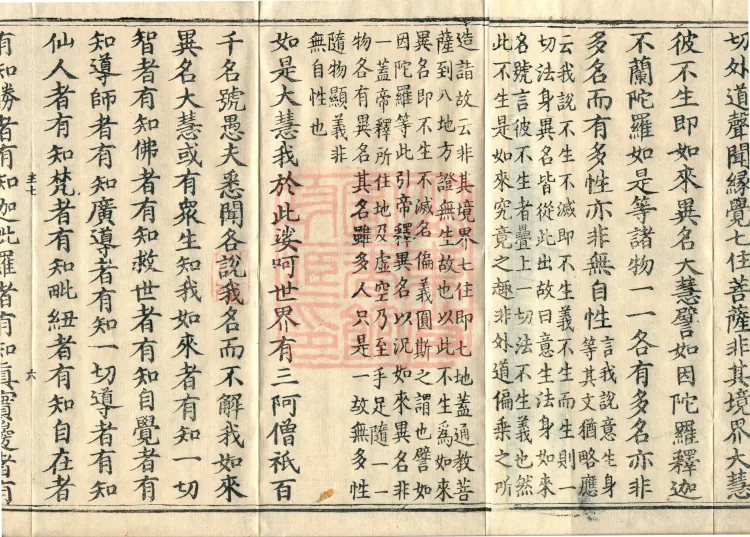 切外道聲聞緣覺七住菩薩非其境界大慧
彼不生即如來異名大慧譬如因陀羅釋迦
不蘭陀羅如是等諸物一一各有多名亦非
多名而有多性亦非無自性
言我說意生身
等其文猶略應
云我說不生不滅即不生義不生而生則一
切法身異名皆從此出故曰意生法身如來
名號言彼不生者疊上一切法不生義也然
此不生是如來究竟之趣非外道偏乘之所
造詣故云非其境界七住即七地蓋通教菩
薩到八地方證無生故也以此不生爲如來
異名即不生不滅名偏義圓斯之謂也譬如
因陀羅等此引帝釋異名以況如來異名非
一蓋帝釋所住地及虛空乃至手足隨一一
物各有異名其名雖多人只是一故無多性
隨物顯義非
無自性也
如是大慧我於此娑呵世界有三阿僧祇百
千名號愚夫悉聞各說我名而不解我如來
異名大慧或有眾生知我如來者有知一切
智者有知佛者有知救世者有知自覺者有
知導師者有知廣導者有知一切導者有知
仙人者有知梵者有知毗紐者有知自在者
六
有知勝者有知迦毗羅者有知真實邊者有